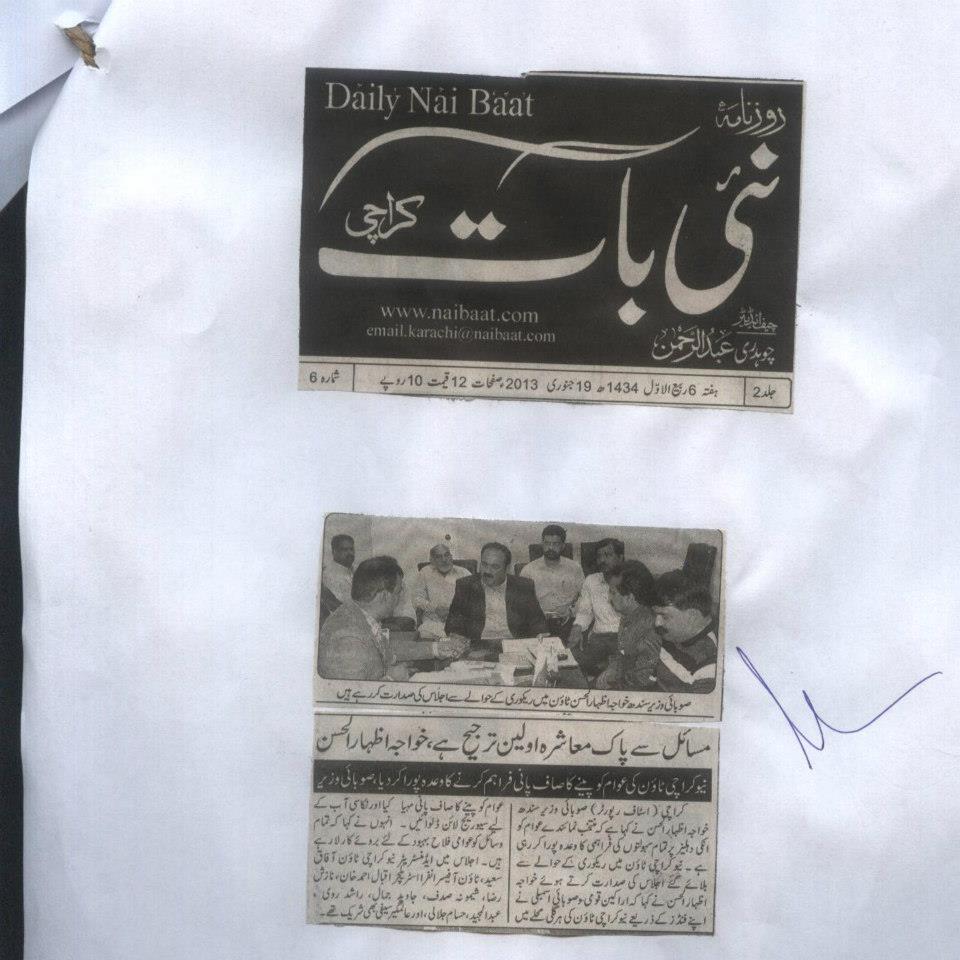 Daily Nai Baat
روزنامہ
نئی بات
کراچی
www.naibaat.com
email.karachi@naibaat.com
چیف ایڈیٹر
چوہدری عبدالرحمٰن
جلد 2
ہفتہ 6 ربیع الاوّل 1434ھ 19 جنوری 2013ء صفحات 12 قیمت 10 روپے
شمارہ 6
صوبائی وزیر سندھ خواجہ اظہار الحسن ٹاؤن میں ریکوری کے حوالے سے اجلاس کی صدارت کر رہے ہیں
مسائل سے پاک معاشرہ اولین ترجیح ہے، خواجہ اظہار الحسن
نیو کراچی ٹاؤن کی عوام کو پینے کا صاف پانی فراہم کرنے کا وعدہ پورا کر دیا، صوبائی وزیر
کراچی (اسٹاف رپورٹر) صوبائی وزیر سندھ
خواجہ اظہار الحسن نے کہا ہے کہ منتخب نمائندے عوام کو
انکی دہلیز پر تمام سہولتوں کی فراہمی کا وعدہ پورا کر رہی
ہے۔ نیو کراچی ٹاؤن میں ریکوری کے حوالے سے
بلائے گئے اجلاس کی صدارت کرتے ہوئے خواجہ
اظہار الحسن نے کہا کہ اراکین قومی و صوبائی اسمبلی نے
اپنے فنڈز کے ذریعے نیو کراچی ٹاؤن کی ہر گلی محلے میں
عوام کو پینے کا صاف پانی مہیا کیا اور نکاسی آب کے
لیے سیوریج لائن ڈلوائیں۔ انہوں نے کہا کہ تمام
وسائل کو عوامی فلاح بہبود کے لئے بروئے کار لا رہے
ہیں۔ اجلاس میں ایڈمنسٹریٹر نیو کراچی ٹاؤن آفاق
سعید، ٹاؤن آفیسر انفرااسٹرکچر اقبال احمد خان، نازش
رضا، شیمونہ صدف، جاوید جمال، راشد روی،
عبدالمجید، حسام جلالی، اور عالمگیر سیفی بھی شریک تھے۔